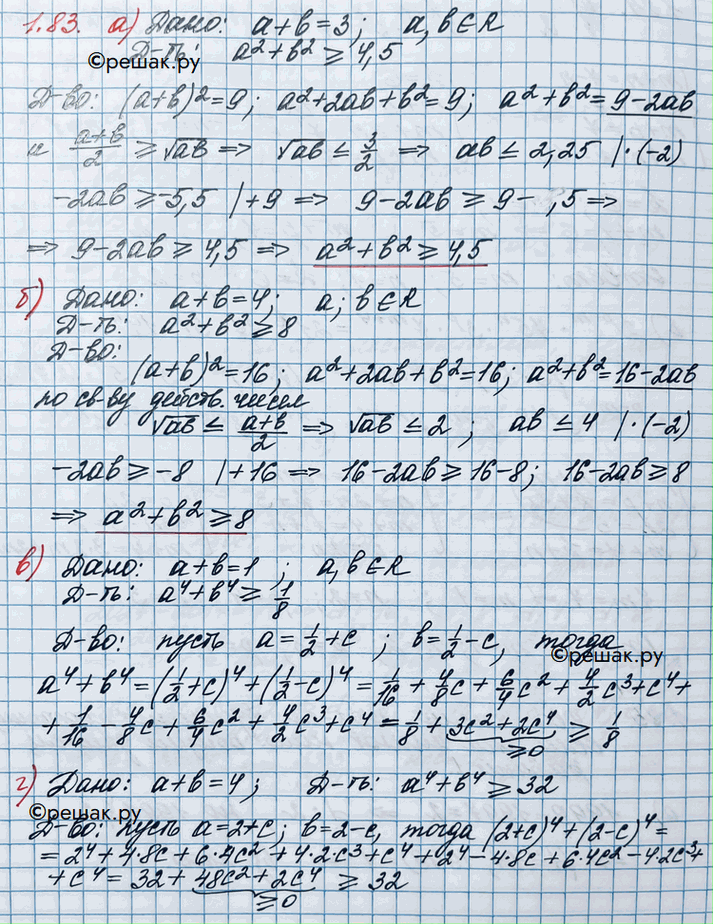 1.83. а) Дано: a+b=3; a,b∈R
Д-ть: a²+b² ≥ 4,5
©решак.ру
Д-во: (a+b)²=9; a²+2ab+b²=9; a²+b²=9-2ab
и (a+b)/2 ≥ √ab ⇒ √ab ≤ 3/2 ⇒ ab ≤ 2,25 |·(-2)
-2ab ≥ -5,5 |+9 ⇒ 9-2ab ≥ 9- ,5 ⇒
⇒ 9-2ab ≥ 4,5 ⇒ a²+b² ≥ 4,5
б) Дано: a+b=4; a; b∈R
Д-ть: a²+b² ≥ 8
Д-во:
(a+b)²=16; a²+2ab+b²=16; a²+b²=16-2ab
по св-ву действ. чисел
√ab ≤ (a+b)/2 ⇒ √ab ≤ 2; ab ≤ 4 |·(-2)
-2ab ≥ -8 |+16 ⇒ 16-2ab ≥ 16-8; 16-2ab ≥ 8
⇒ a²+b² ≥ 8
в) Дано: a+b=1; a,b∈R
Д-ть: a⁴+b⁴ ≥ 1/8
Д-во: пусть a=1/2+c; b=1/2-c, тогда
©решак.ру
a⁴+b⁴=(1/2+c)⁴+(1/2-c)⁴=1/16+4/8c+6/4c²+4/2c³+c⁴+
+1/16-4/8c+6/4c²+4/2c³+c⁴=1/8+3c²+2c⁴ ≥ 1/8
≥0
г) Дано: a+b=4; Д-ть: a⁴+b⁴ ≥ 32
©решак.ру
Д-во: пусть a=2+c; b=2-c, тогда (2+c)⁴+(2-c)⁴=
=2⁴+4·8c+6·4c²+4·2c³+c⁴+2⁴-4·8c+6·4c²-4·2c³+
+c⁴=32+48c²+2c⁴ ≥ 32
≥0